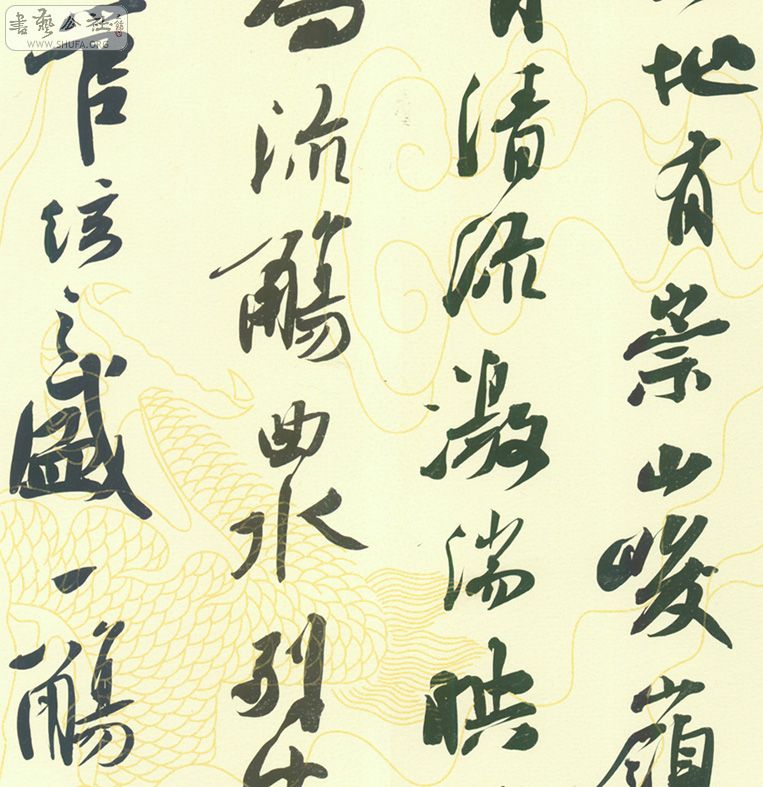 地有崇山峻嶺
有清流激湍映
為流觴曲水列坐
管弦之盛一觴
書藝公社
WWW.SHUFA.ORG